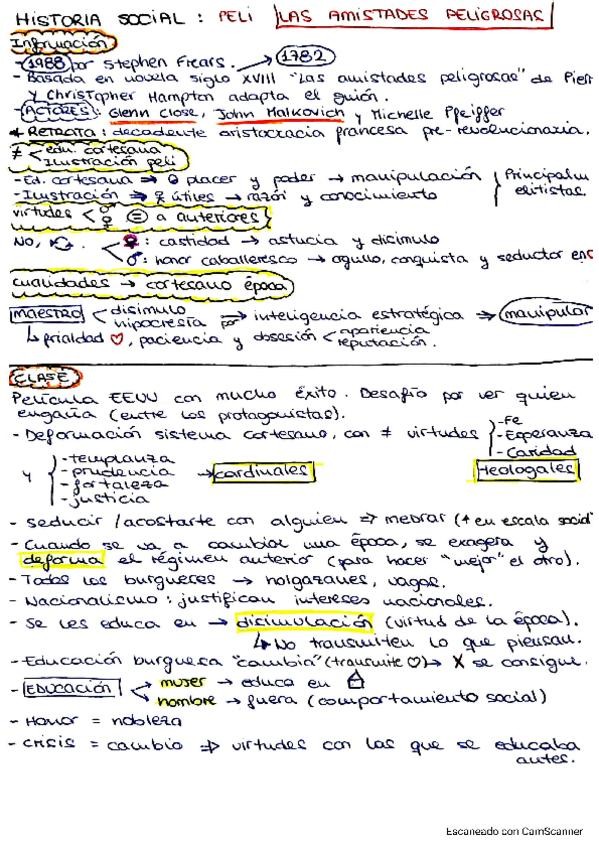 HISTORIA SOCIAL : PELI LAS AMISTADES PELIGROSAS
Información
- 1988 por Stephen Frears. → 1782
- Basada en novela siglo XVIII "Las amistades peligrosas" de Pierr
y Christopher Hampton adapta el guión.
- ACTORES: Glenn Close, John Malkovich y Michelle Pfeiffer
* RETRATA: decadente aristocracia francesa pre-revolucionaria.
≠ < edu. cortesana
Ilustración peli
- Ed. cortesana ⇒ placer y poder → manipulación } Principalm
- Ilustración ⇒ útiles → razón y conocimiento elitistas.
virtudes < ♀ ♂ = a anteriores
No, . < ♀: castidad → astucia y disimulo
♂: honor caballeresco → orgullo, conquista y seductor
cualidades → cortesano época
MAESTRO < disimulo
hipocresía por → inteligencia estratégica ⇒ manipular
↳ frialdad ♡, paciencia y obsesión < apariencia
reputación.
CLASE
Película EEUU con mucho éxito. Desafío por ver quien
engaña (entre los protagonistas).
- Deformación sistema cortesano, con ≠ virtudes } - Fe
- Esperanza
- Caridad
teologales
y } - templanza
- prudencia → cardinales
- fortaleza
- justicia
- seducir / acostarte con alguien ⇒ mejorar (↑ en escala social
- Cuando se va a cambiar una época, se exagera y
deforma el régimen anterior (para hacer "mejor" el otro).
- Todos los burgueses → holgazanes, vagos.
- Nacionalismo: justifican intereses nacionales.
- Se les educa en → disimulación (virtud de la época).
↳ No transmiten lo que piensan.
- Educación burguesa "cambia" (transmite ♡) → X se consigue.
- EDUCACIÓN < mujer → educa en
hombre → fuera (comportamiento social)
- Honor = nobleza
- Crisis = cambio ⇒ virtudes con las que se educaba
antes.
Escaneado con CamScanner